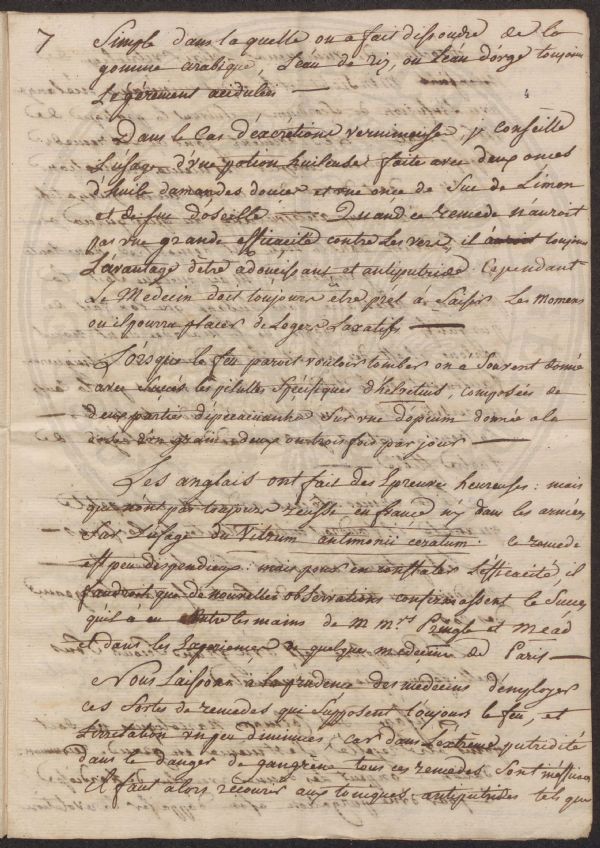 7 Simple dans laquelle on a fait dissoudre de la
gomme arabique, L'eau de ris, ou L'eau d'orge toujours
Légèrement acidulées —
4
Dans le Cas d'excrétions vermineuse, j conseille
L'usage d'une potion huileuse faite avec deux onces
d'huile damandes douces et une once de Suc de Limon
et de suc d'oseille. Quand ce remede n'auroit
pas une grande efficacité contre Les vers, il auroit toujours
L'avantage d'être adoucissant et antiputride. Cependant
Le Medecin doit toujours être prêt à Saisir Les momens
ou il pourra placer de Legers Laxatifs —
Lorsque le feu paroit vouloir tomber on a Souvent donné
avec Succès les pilulles Spécifiques d'helvetius, composées de
deux parties dipecacuanha Sur une d'opium donnée a la
dose d'un grain deux ou trois fois par jour —
Les anglais ont fait des Epreuves heureuses: mais
qui n'ont pas toujours reussie en france n'y dans les armées
Sur L'usage du Vitrum antimonii ceratum. Ce remede
est peu dispendieux: mais pour en constater L'efficacité, il
faudroit que de nouvelles observations confirmassent le Succès
qu'il à eu entre les mains de M Mrs Pringle et Mead
et dans les Experiences de quelque medecins de Paris —
Nous Laissons à la prudence des medecins d'employer
ces Sortes de remedes qui Supposent toujours le feu, et
L'irritation un peu diminués, car dans L'extreme putridité
dans le danger de gangrene tous ces remedes Sont
il faut alors recourir aux toniques antiputrides tels que